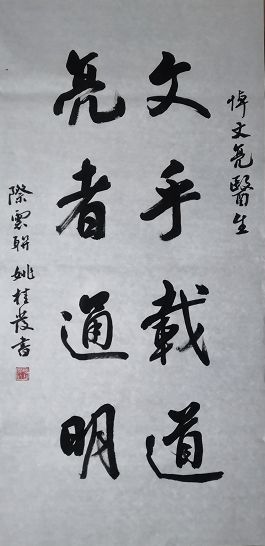 悼文亮醫生
文乎載道
亮者通明
際雲聯 姚桂茂書